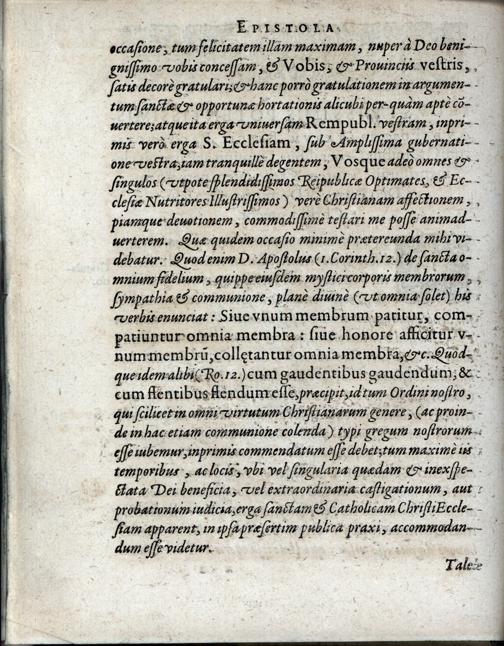 EPISTOLA
occasione, tum felicitatem illam maximam, nuper à Deo beni-
gnissimo vobis concessam, & Vobis, & Prouinciis vestris,
satis decorè gratulari; & hanc porrò gratulationem in argumen-
tum sanctæ & opportunæ hortationis alicubi per-quàm aptè cō-
uertere; atque ita erga vniuersam Rempubl. vestram, inpri-
mis verò erga S. Ecclesiam, sub Amplissima gubernati-
one vestra, iam tranquillè degentem, Vosque adeò omnes &
singulos (vtpote splendidissimos Reipublicæ Optimates, & Ec-
clesiæ Nutritores Illustrissimos) verè Christianam affectionem,
piamque deuotionem, commodissimè testari me posse animad-
uerterem. Quæ quidem occasio minimè prætereunda mihi vi-
debatur. Quod enim D. Apostolus (1. Corinth. 12.) de sancta o-
mnium fidelium, quippe eiusdem mystici corporis membrorum,
sympathia & communione, planè diuinè (vt omnia solet) his
verbis enunciat: Siue vnum membrum patitur, com-
patiuntur omnia membra: siue honore afficitur v-
num membrū, collętantur omnia membra, &c. Quod-
que idem alibi (Ro. 12.) cum gaudentibus gaudendum, &
cum flentibus flendum esse, præcipit, id tum Ordini nostro,
qui scilicet in omni virtutum Christianarum genere, (ac proin-
de in hac etiam communione colenda) typi gregum nostrorum
esse iubemur, inprimis commendatum esse debet; tum maximè iis
temporibus, ac locis, vbi vel singularia quædam & inexspe-
ctata Dei beneficia, vel extraordinaria castigationum, aut
probationum iudicia, erga sanctam & Catholicam Christi Eccle-
siam apparent, in ipsa præsertim publica praxi, accommodan-
dum esse videtur.